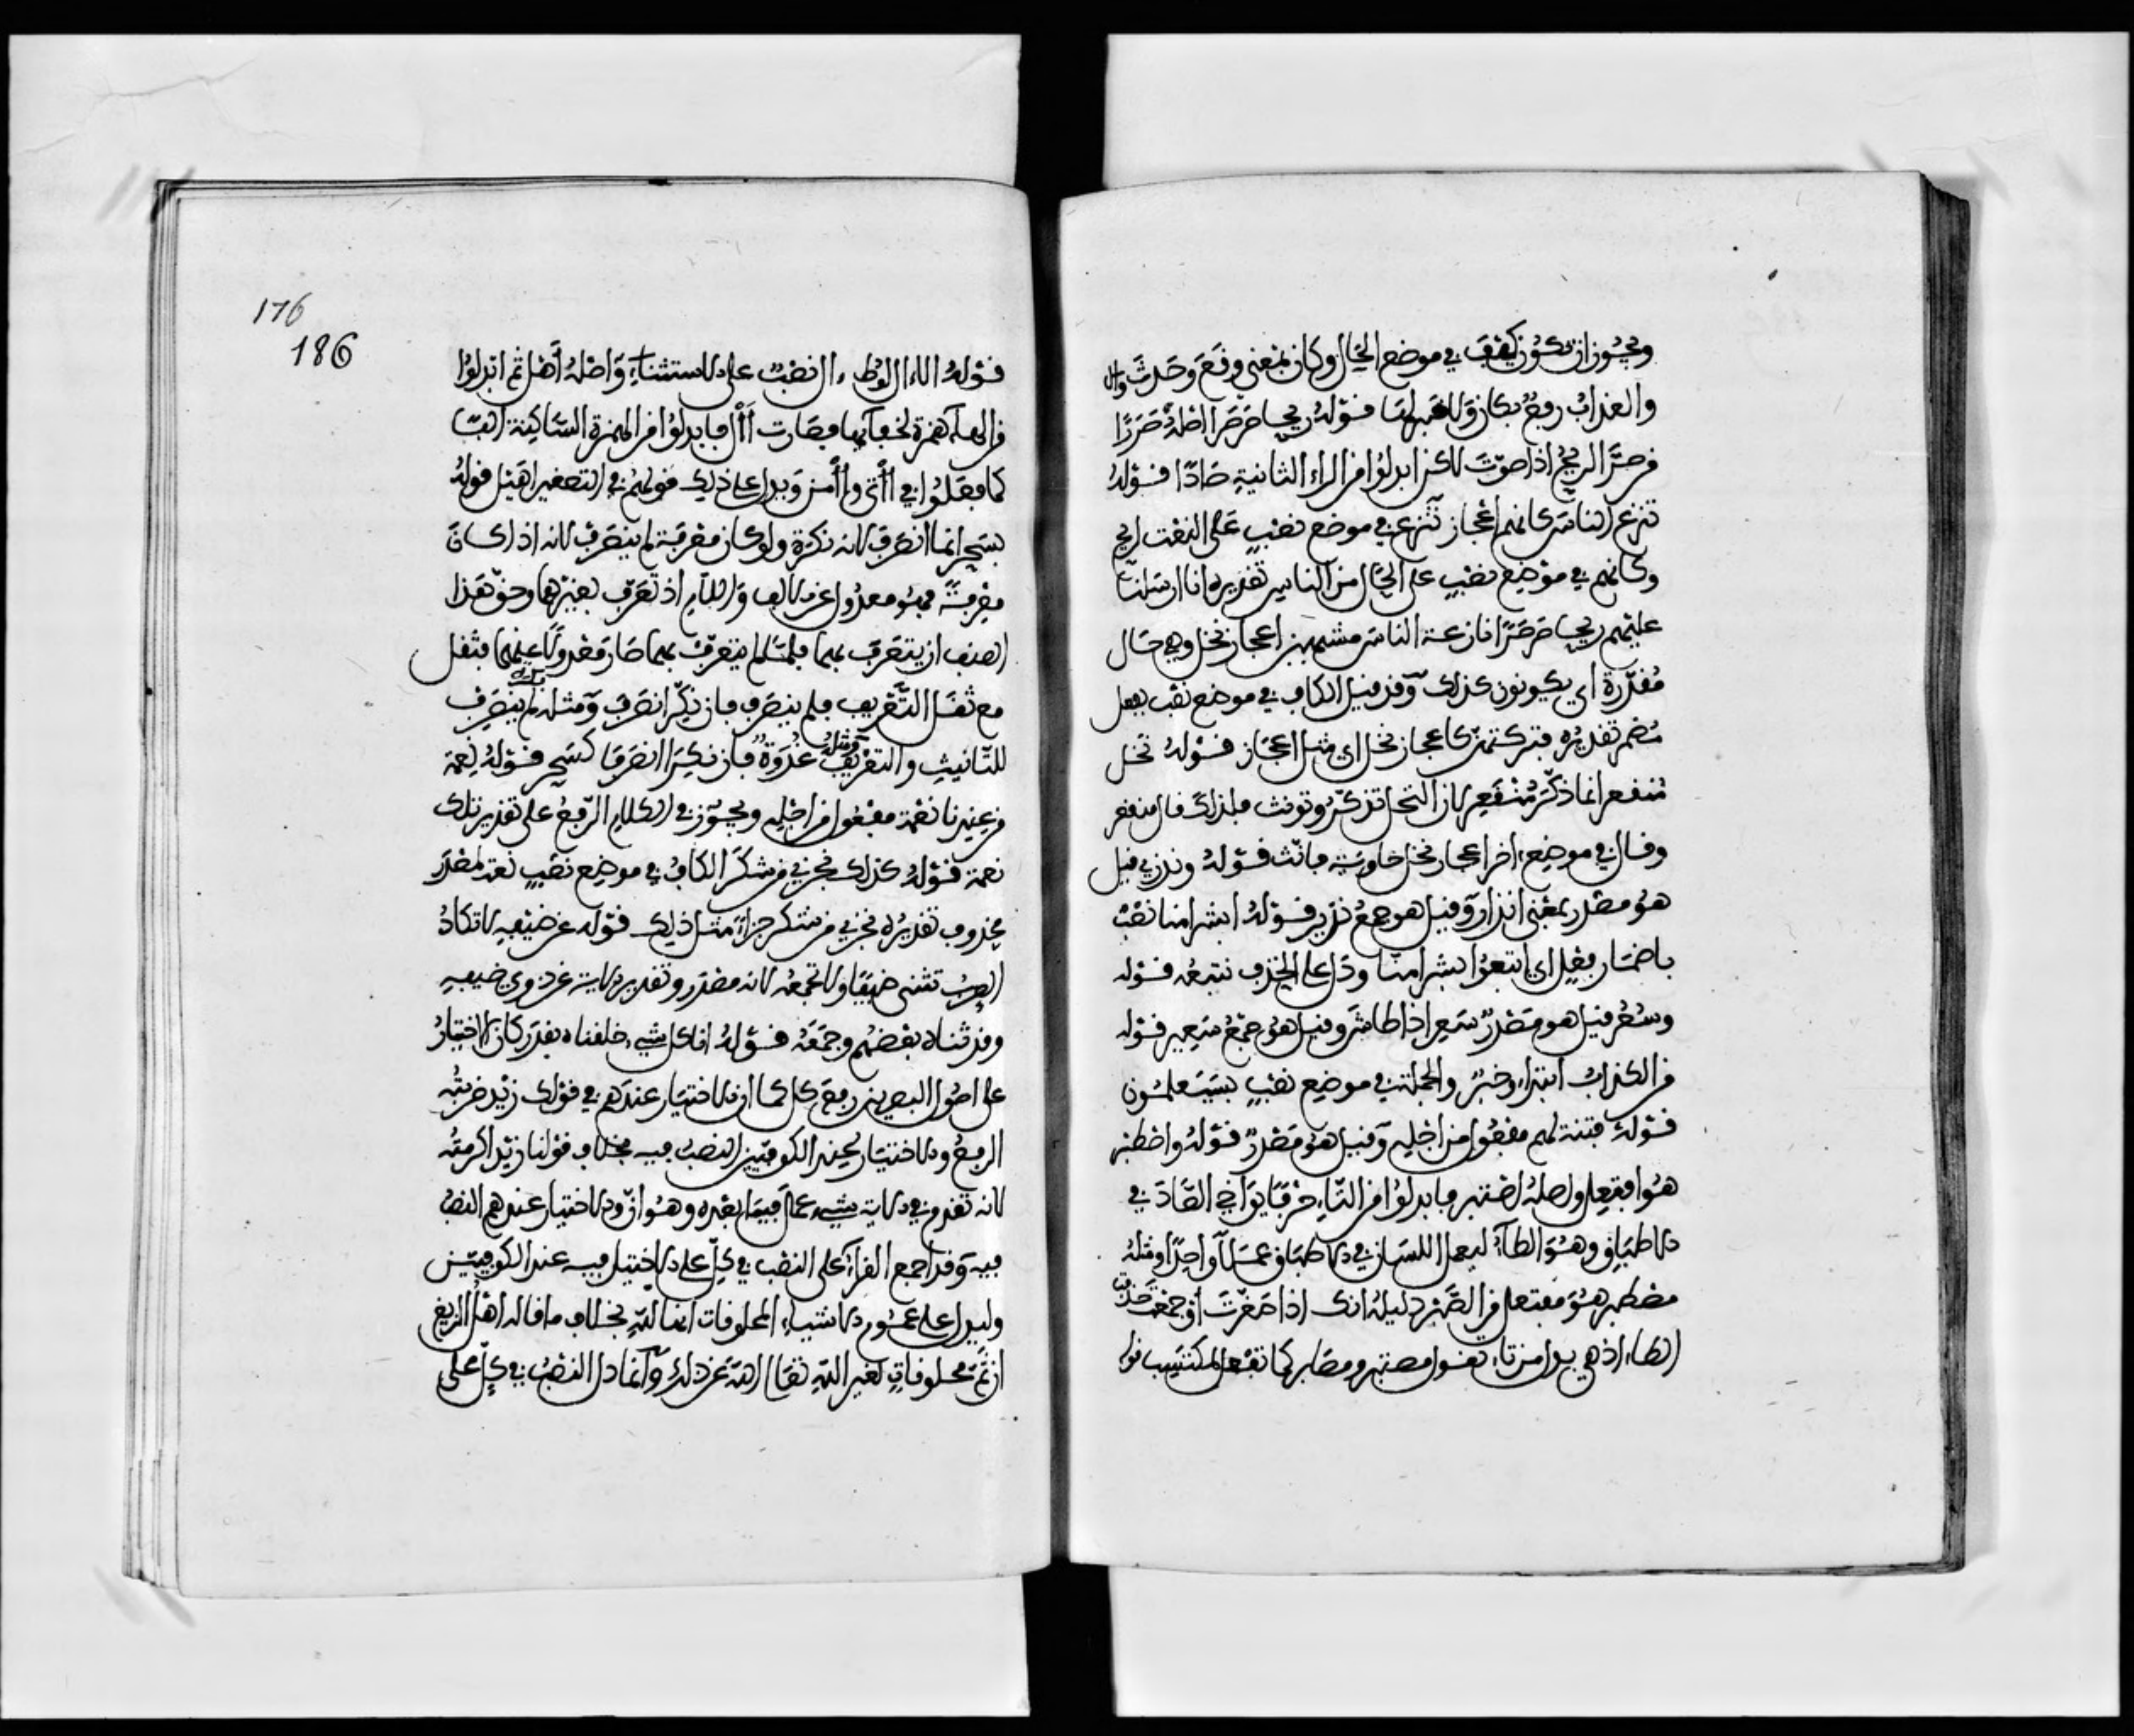 ويجوز ان تكون كيف في موضع الحال وكان بمعنى وقع وحدث وان
والعذاب رفع بكان ولا خبر لها قوله ريحا صرصرا اصله صررا
من صر الريح اذا صوت لاكن ابدلوا من الراء الثانية صادا قوله
تنزع الناس كانهم اعجاز تنزع في موضع نصب على النعت لريح
وكانهم في موضع نصب على الحال من الناس تقديره انا ارسلنا
عليهم ريحا صرصرا نازعة الناس مشبهين اعجاز نخل وهي حال
مقدرة اي يكونون كذلك وقد قيل الكاف في موضع نصب بفعل
مضمر تقديره فتركتهم كاعجاز نخل اي مثل اعجاز قوله نخل
منقعر انما ذكر منقعر لان النخل تذكر وتونث فلذلك قال منقعر
وقال في موضع اخر اعجاز نخل خاوية فانث قوله ونذر قيل
هو مصدر بمعنى انذار وقيل هو جمع نذير قوله ابشرا منا نصب
باضمار فعل اي انتبع بشرا منا ودل على الحذف نتبعه قوله
وسعر قيل هو مصدر سعر اذا طاش وقيل هو جمع سعير قوله
من الكذاب ابتداء وخبر والجملة في موضع نصب بسيعلمون
قوله فتنة لهم مفعول من اجله وقيل هو مصدر قوله واصطبر
هو افتعل واصله اصتبر فابدلوا من التاء حرفا يواخي الصاد في
الاطباق وهو الطاء ليعمل اللسان في الاطباق عملا واحدا ومثله
مصطبر هو مفتعل من الصبر دليله انك اذا صغرت او جمعت حذفت
الطاء اذ هي بدل من تاء تقول مصتبر ومصابر كما تفعل بمكتسب قوله
176
186
قوله الا ال لوط ال نصب على الاستثناء واصله اهل ثم ابدلوا
من الهاء همزة لخفائها فصارت أأل فابدلوا من الهمزة الساكنة الفا
كما فعلوا في أأتى وأأمن ويدل على ذلك قولهم في التصغير اهيل قوله
بسحر انما انصرف لانه نكرة ولو كان معرفة لم ينصرف لانه اذا كان
معرفة فهو معدول عن الالف واللام اذ تعرف بغيرهما وحق هذا
الصنف ان يتعرف بهما فلما لم يتعرف بهما صار معدولا عنهما فثقل
مع ثقل التعريف فلم ينصرف فان نكر انصرف ومثله بكرة لم ينصرف
للتانيث والتعريف ومثله غدوة فان نكرا انصرفا كسحر قوله نعمة
من عندنا نعمة مفعول من اجله ويجوز في الكلام الرفع على تقدير تلك
نعمة قوله كذلك نجزي من شكر الكاف في موضع نصب نعت لمصدر
محذوف تقديره نجزي من شكر جزاء مثل ذلك قوله عن ضيفه لا تكاد
العرب تثني ضيفا ولا تجمعه لانه مصدر وتقدير الاية عن ذوي ضيفه
وقد ثناه بعضهم وجمعه قوله انا كل شيء خلقناه بقدر كان الاختيار
على اصول البصريين رفع كل كما ان الاختيار عندهم في قولك زيد ضربته
الرفع والاختيار عند الكوفيين النصب فيه بخلاف قولنا زيد اكرمته
لانه تقدم في الاية شيء عمل فيما بعده وهو ان والاختيار عندهم النصب
فيه وقد اجمع القراء على النصب في كل على الاختيار فيه عند الكوفيين
وليدل على عموم الاشياء المخلوقات انها لله بخلاف ما قاله اهل الزيغ
ان ثم مخلوقات لغير الله تعالى الله عن ذلك وانما دل النصب في كل على